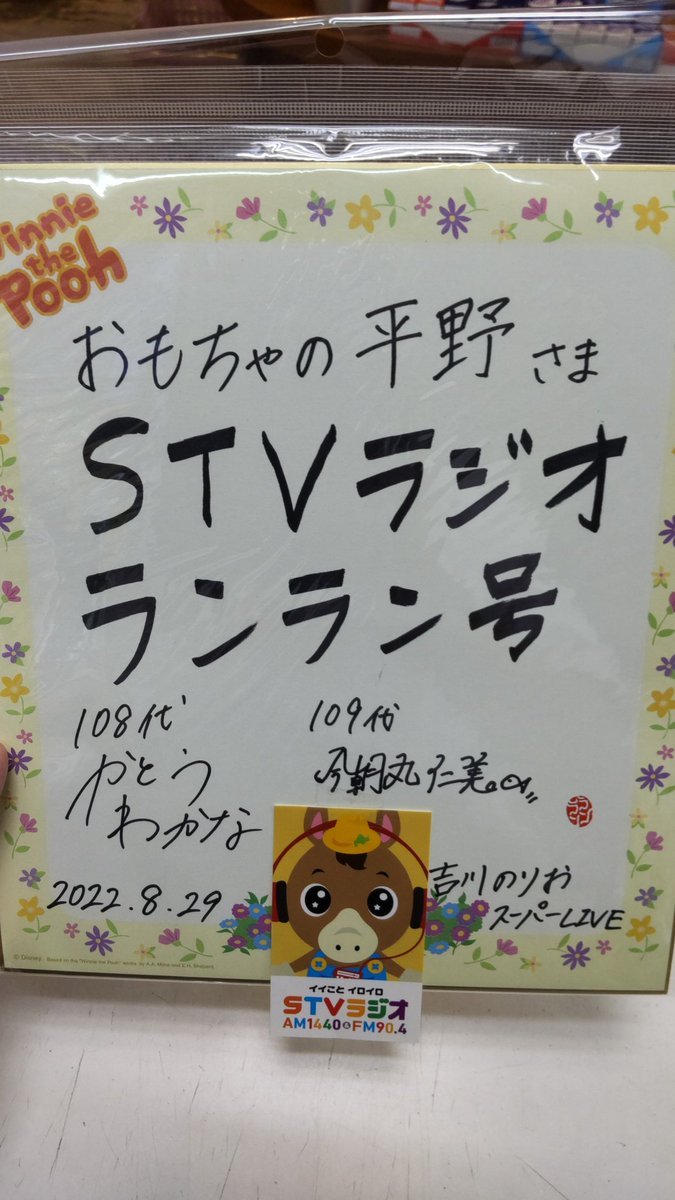 Winnie
the
Pooh
おもちゃの平野さま
STVラジオ
ランラン号
108代
かとう
わかな
109代
今朝丸仁美
2022.8.29
吉川のりお
スーパーLIVE
© Disney. Based on the "Winnie the Pooh" works, by A.A. Milne and E.H. Shepard.
イイこと イロイロ
STVラジオ
AM1440&FM90.4